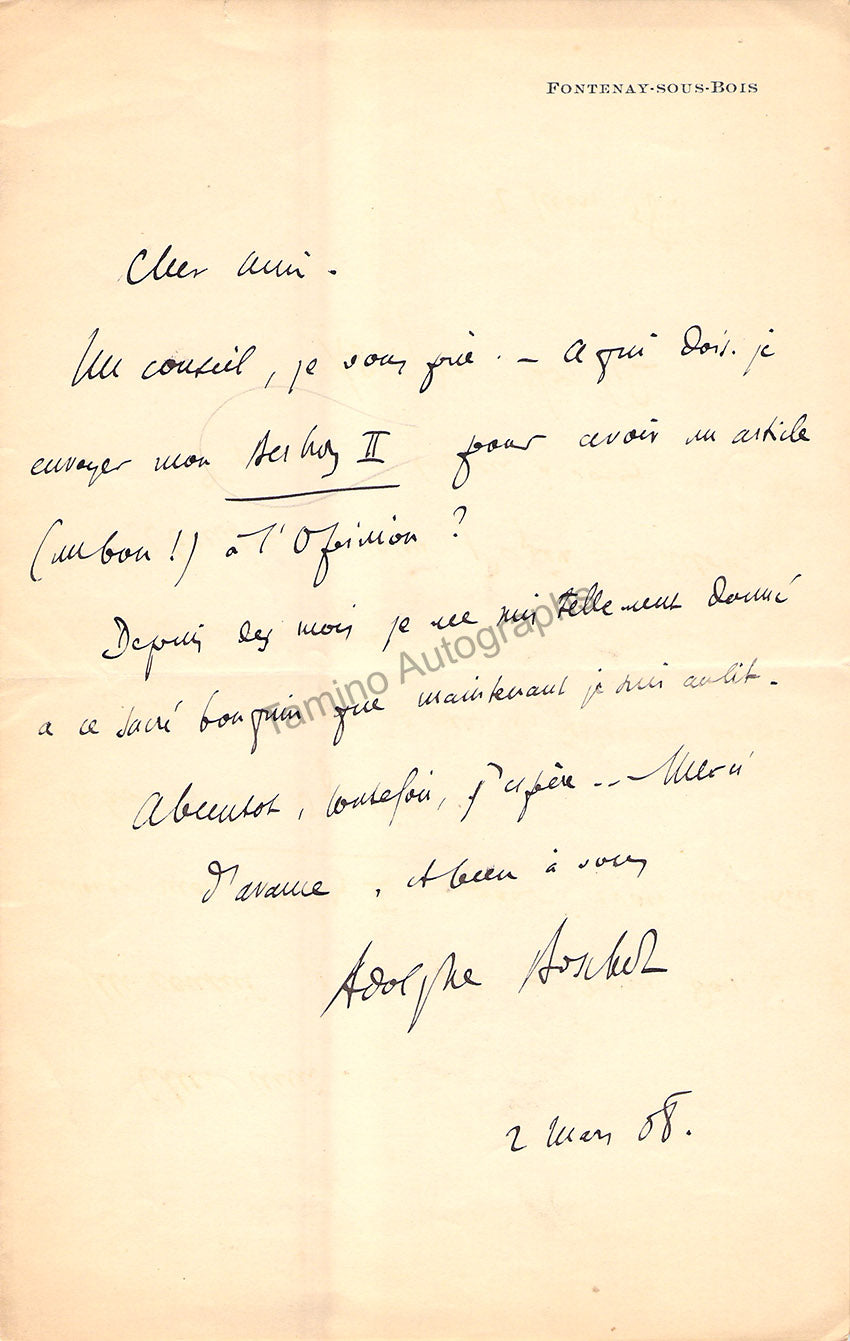 FONTENAY-SOUS-BOIS
Cher ami.
Un conseil, je vous prie. – A qui dois-je
envoyer mon Berlioz II pour avoir un article
(un bon !) à l'Opinion ?
Depuis des mois je me suis tellement donné
a ce sacré bouquin que maintenant je suis au lit.
Tamino Autographs
A bientot, toutefois, j'espère... Merci
d'avance, et bien à vous
Adolphe Boschot
2 Mars 08.